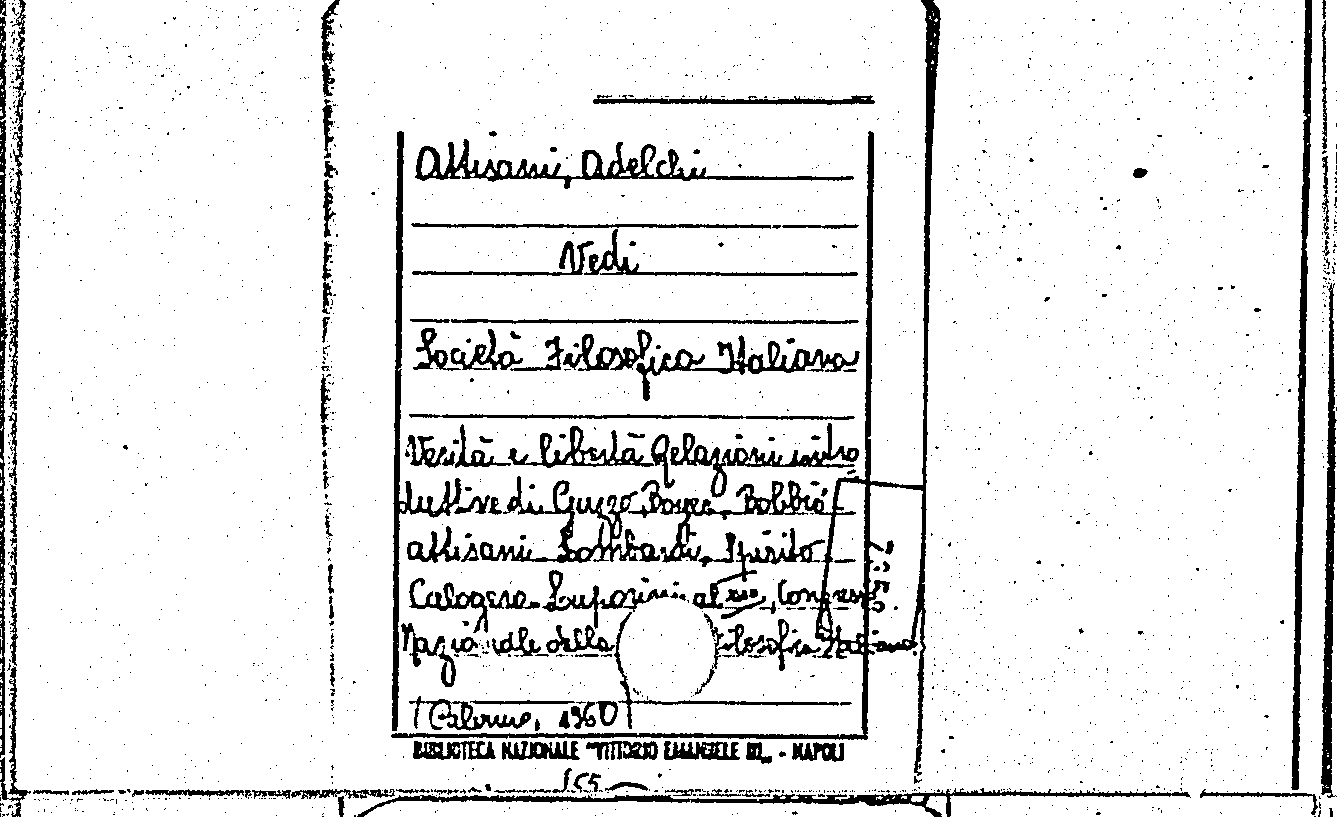 Attisani, Adelchi
Vedi
Società Filosofica Italiana
Verità e libertà Relazioni intro
duttive di Guzzo, Boyer, Bobbio
Attisani Lombardi, Spirito
Calogero Luporini al XVIII, Congresso
Nazionale della Filosofica Italiana
(Palermo, 1960)
BIBLIOTECA NAZIONALE "VITTORIO EMANUELE III" - NAPOLI